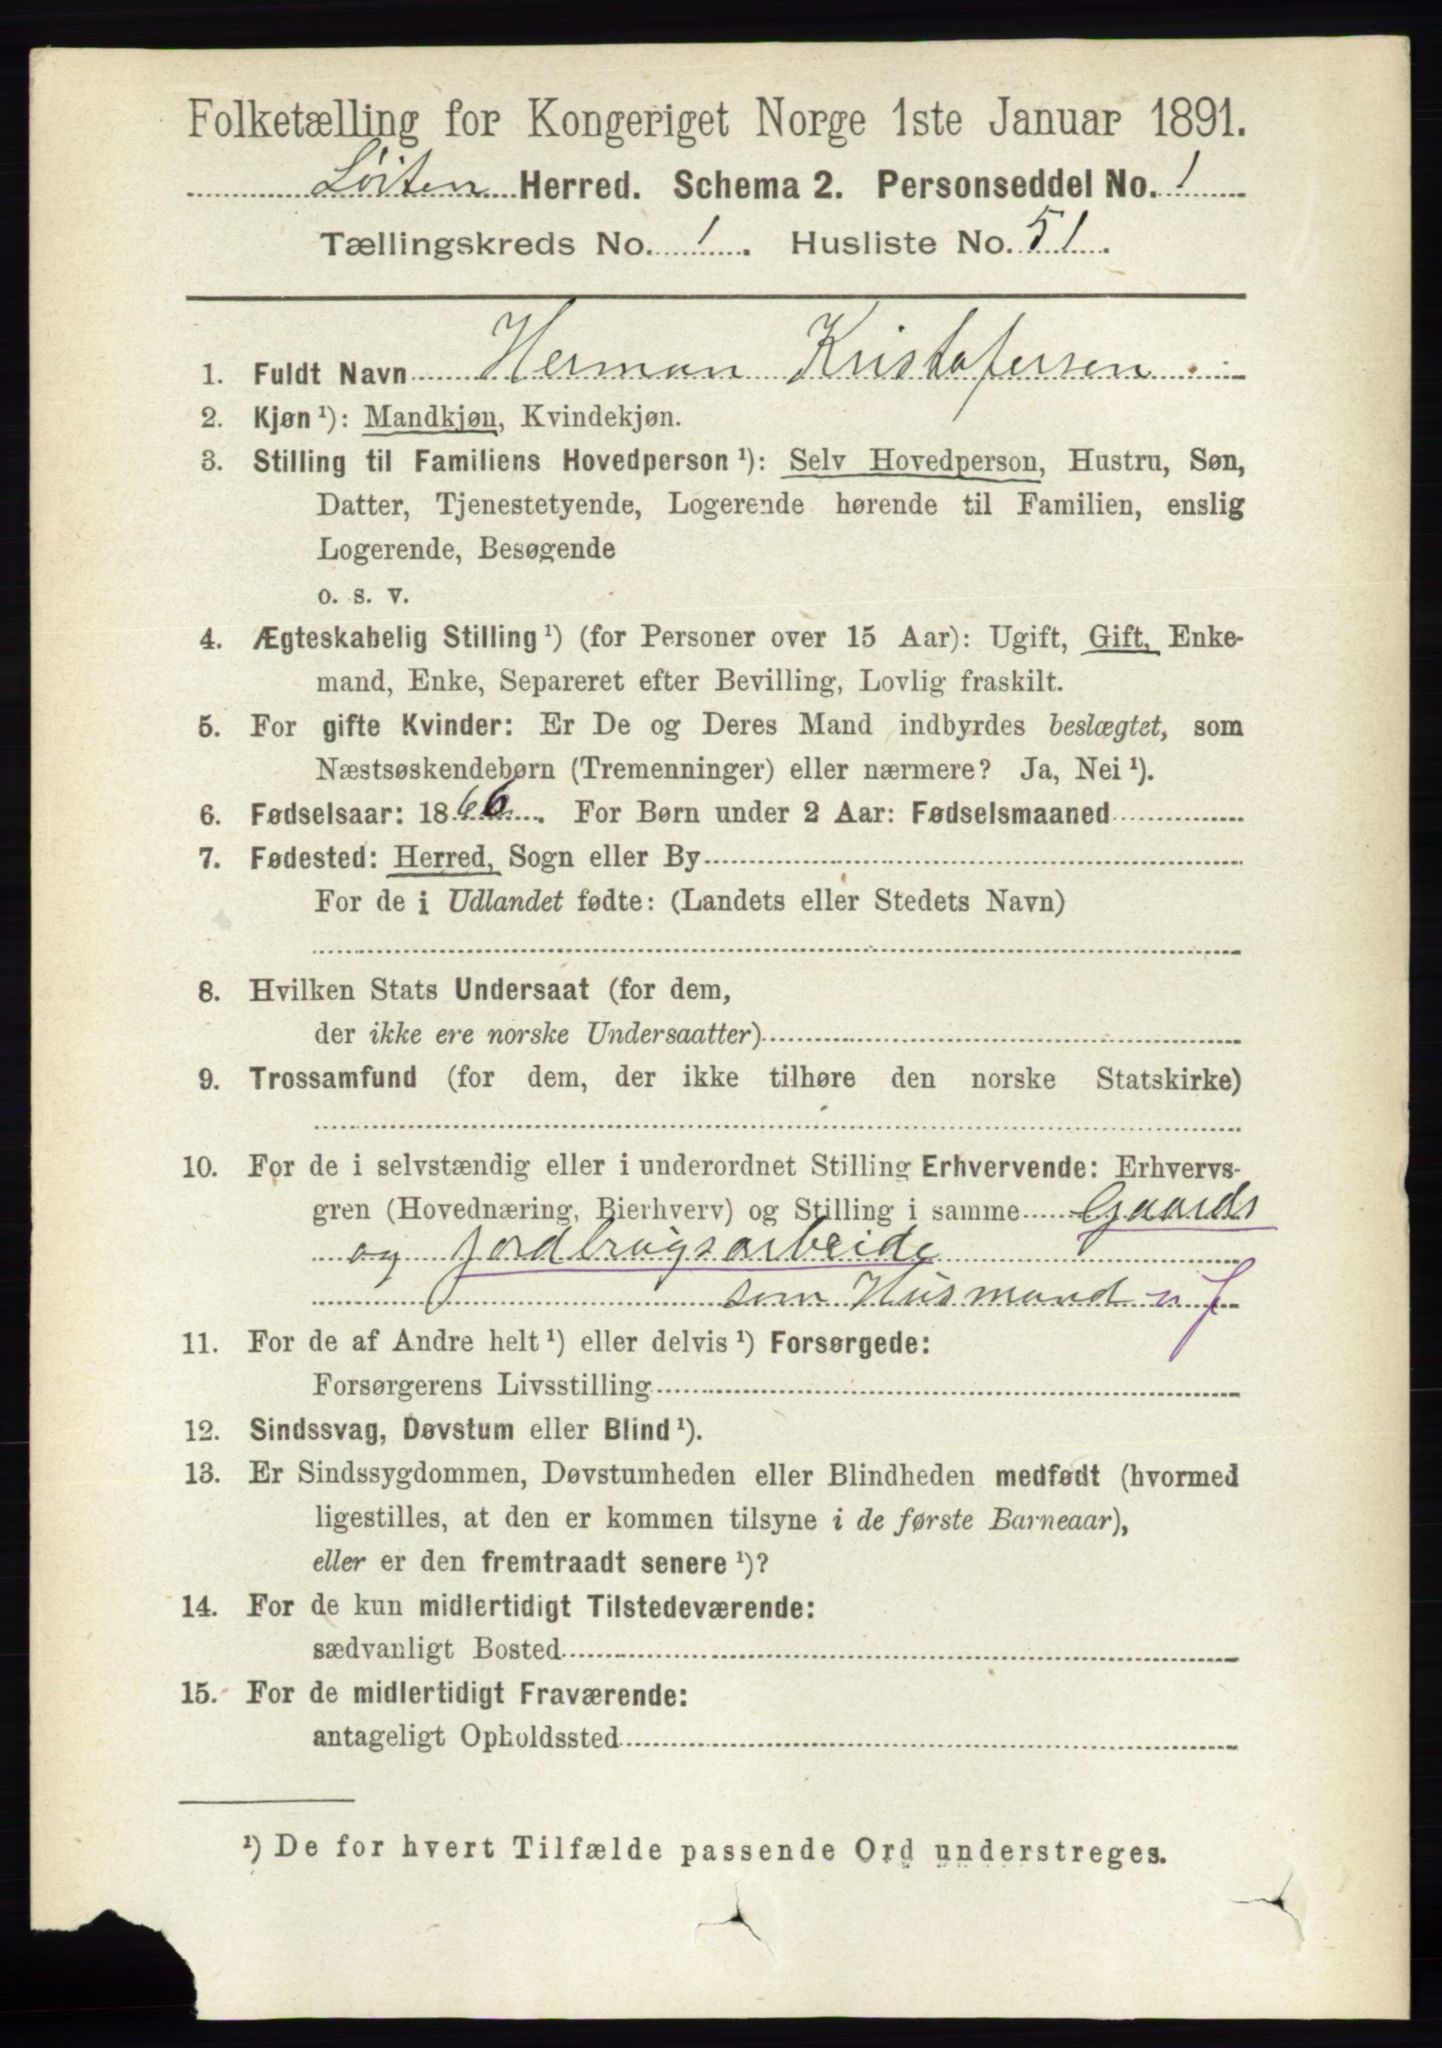 Folketælling for Kongeriget Norge 1ste Januar 1891.
Løiten Herred. Schema 2. Personseddel No. 1
Tællingskreds No. 1. Husliste No. 51.
1. Fuldt Navn Herman Kristofersen
2. Kjøn¹): Mandkjøn, Kvindekjøn.
3. Stilling til Familiens Hovedperson¹): Selv Hovedperson, Hustru, Søn,
Datter, Tjenestetyende, Logerende hørende til Familien, enslig
Logerende, Besøgende
o. s. v.
4. Ægteskabelig Stilling¹) (for Personer over 15 Aar): Ugift, Gift, Enke-
mand, Enke, Separeret efter Bevilling, Lovlig fraskilt.
5. For gifte Kvinder: Er De og Deres Mand indbyrdes beslægtet, som
Næstsøskendebørn (Tremenninger) eller nærmere? Ja, Nei¹).
6. Fødselsaar: 1866. For Børn under 2 Aar: Fødselsmaaned
7. Fødested: Herred, Sogn eller By
For de i Udlandet fødte: (Landets eller Stedets Navn)
8. Hvilken Stats Undersaat (for dem,
der ikke ere norske Undersaatter)
9. Trossamfund (for dem, der ikke tilhøre den norske Statskirke)
10. For de i selvstændig eller i underordnet Stilling Erhvervende: Erhvervs-
gren (Hovednæring, Bierhverv) og Stilling i samme Gaards
og jordbrugsarbeide
som Husmand u J
11. For de af Andre helt¹) eller delvis¹) Forsørgede:
Forsørgerens Livsstilling
12. Sindssvag, Døvstum eller Blind¹).
13. Er Sindssygdommen, Døvstumheden eller Blindheden medfødt (hvormed
ligestilles, at den er kommen tilsyne i de første Barneaar),
eller er den fremtraadt senere¹)?
14. For de kun midlertidigt Tilstedeværende:
sædvanligt Bosted
15. For de midlertidigt Fraværende:
antageligt Opholdssted
¹) De for hvert Tilfælde passende Ord understreges.